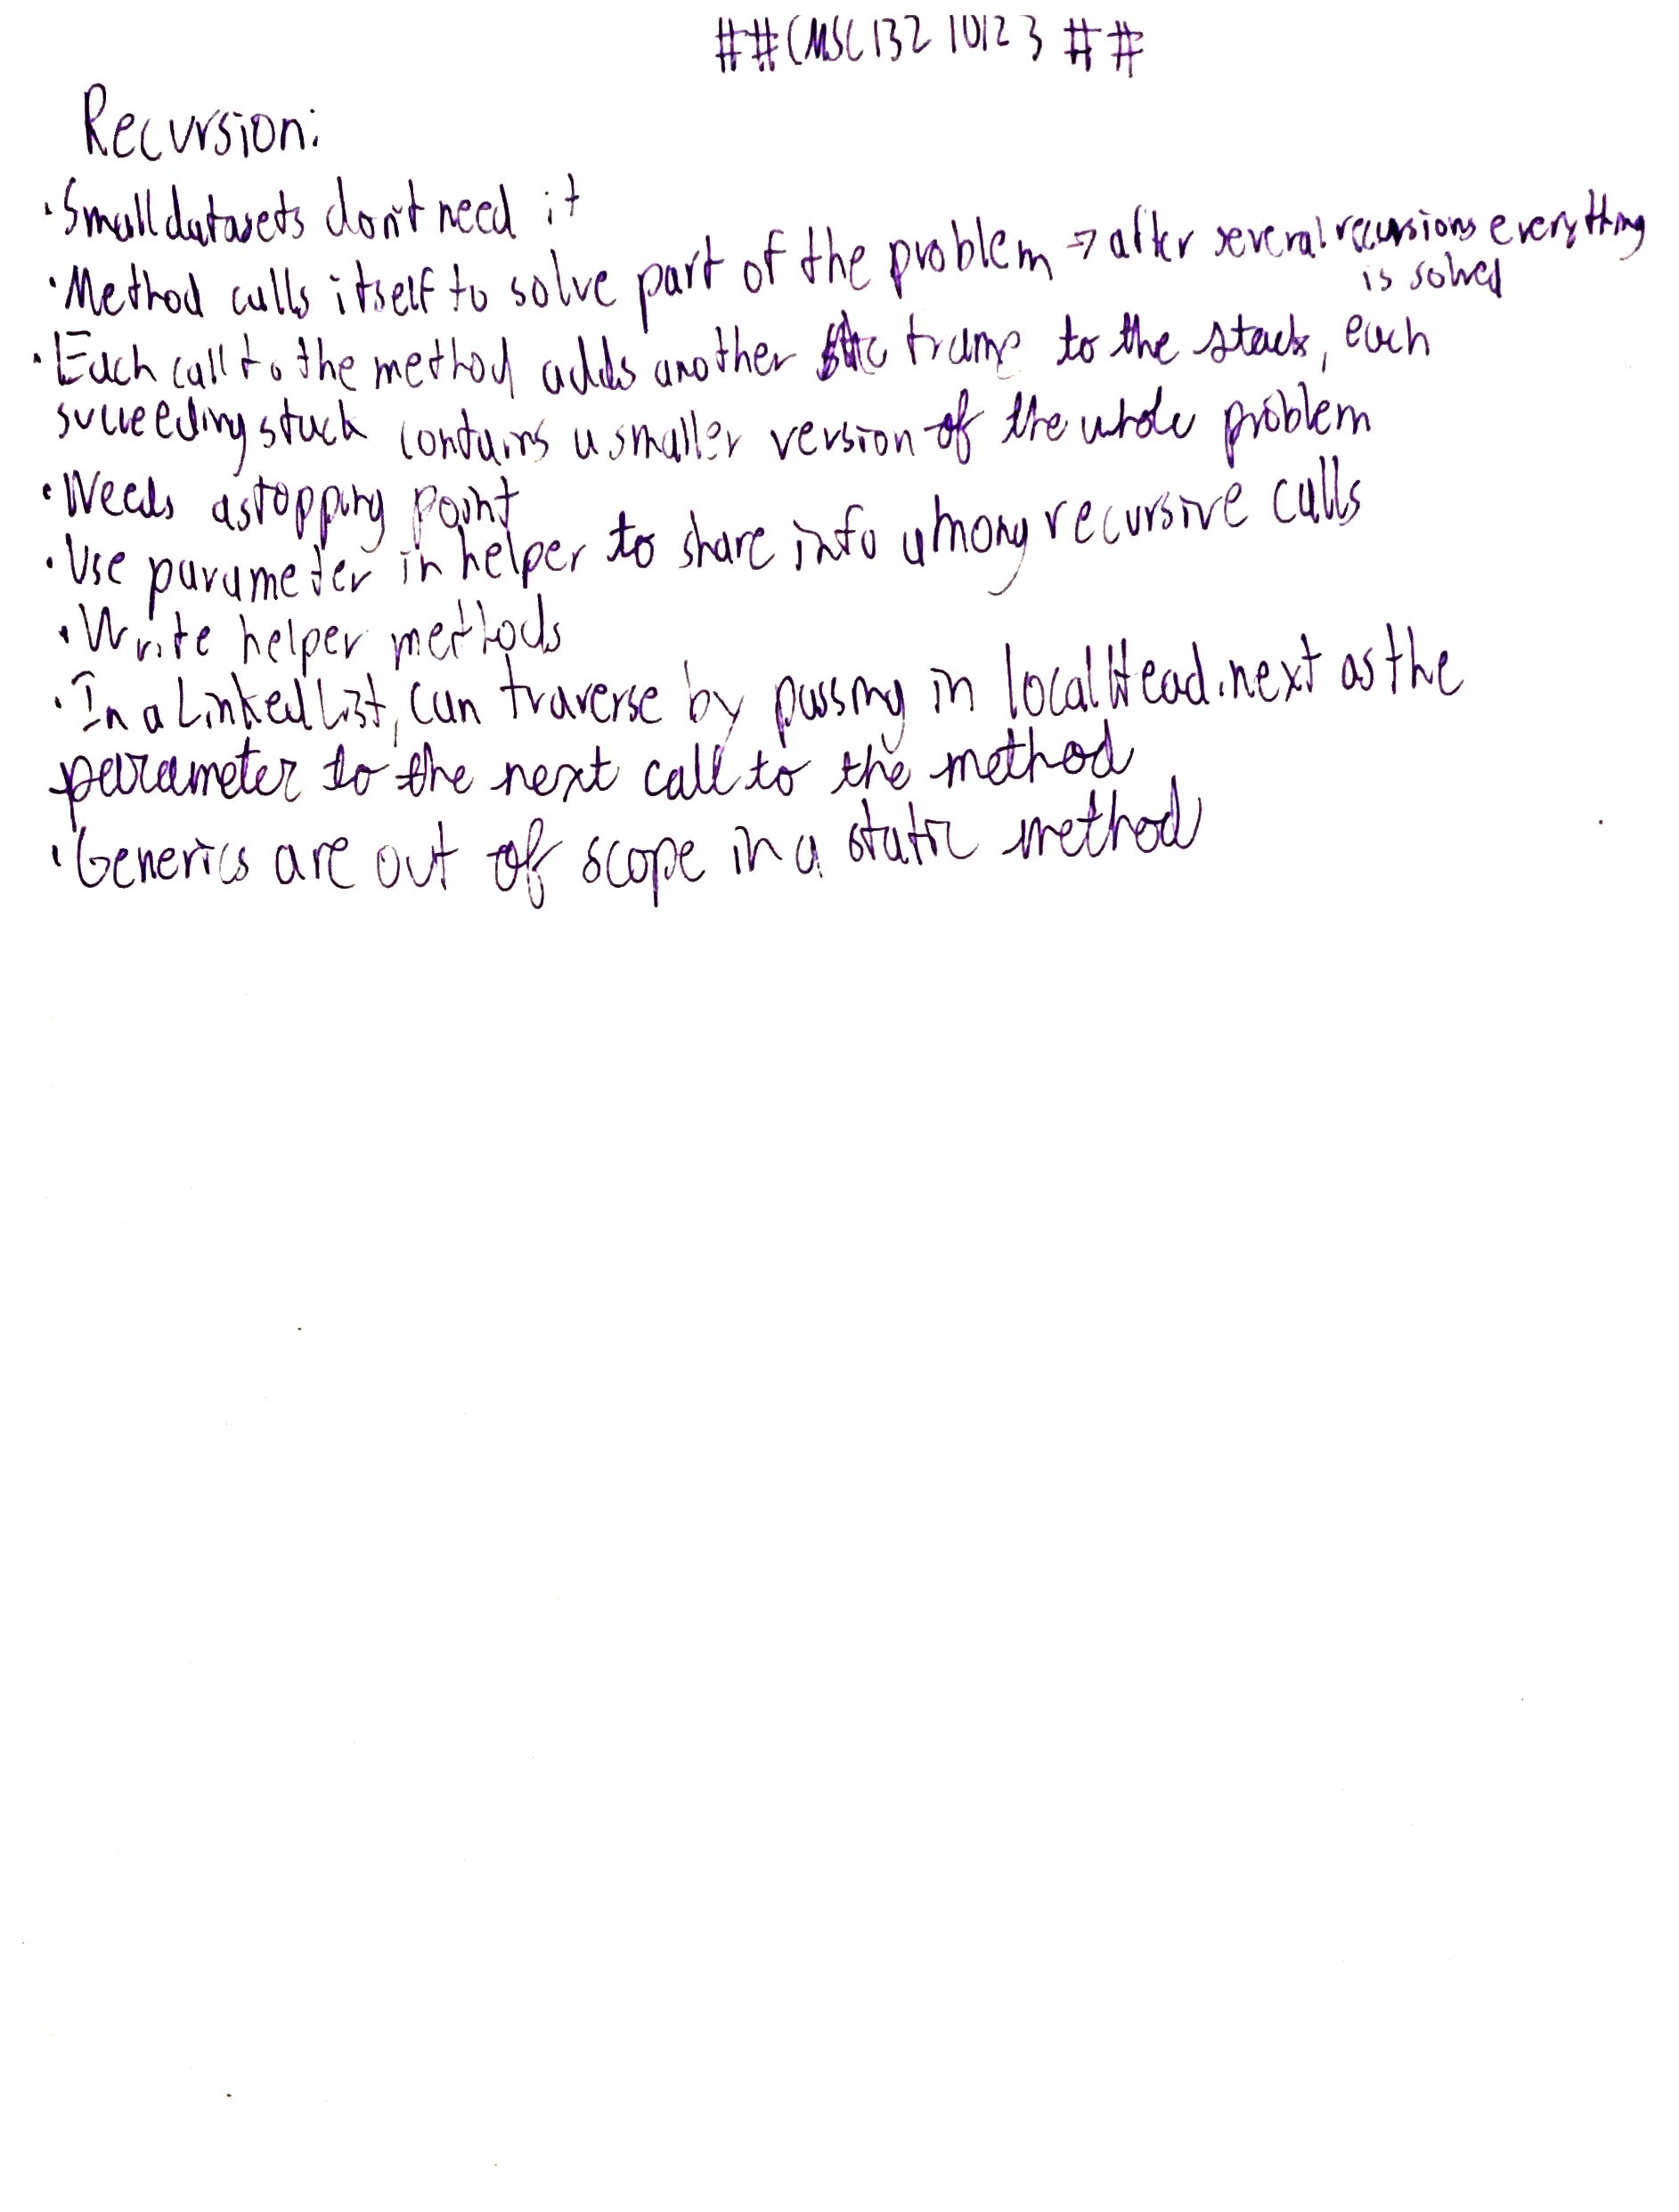 ##CMSC132 10/23 ##
Recursion:
·Small datasets don't need it
·Method calls itself to solve part of the problem => after several recursions everything
is solved
·Each call to the method adds another frame to the stack, each
succeeding stack contains a smaller version of the whole problem
·Needs a stopping point
·Use parameter in helper to share info among recursive calls
·Write helper methods
·In a Linked List, can traverse by passing in localHead.next as the
parameter to the next call to the method
·Generics are out of scope in a static method